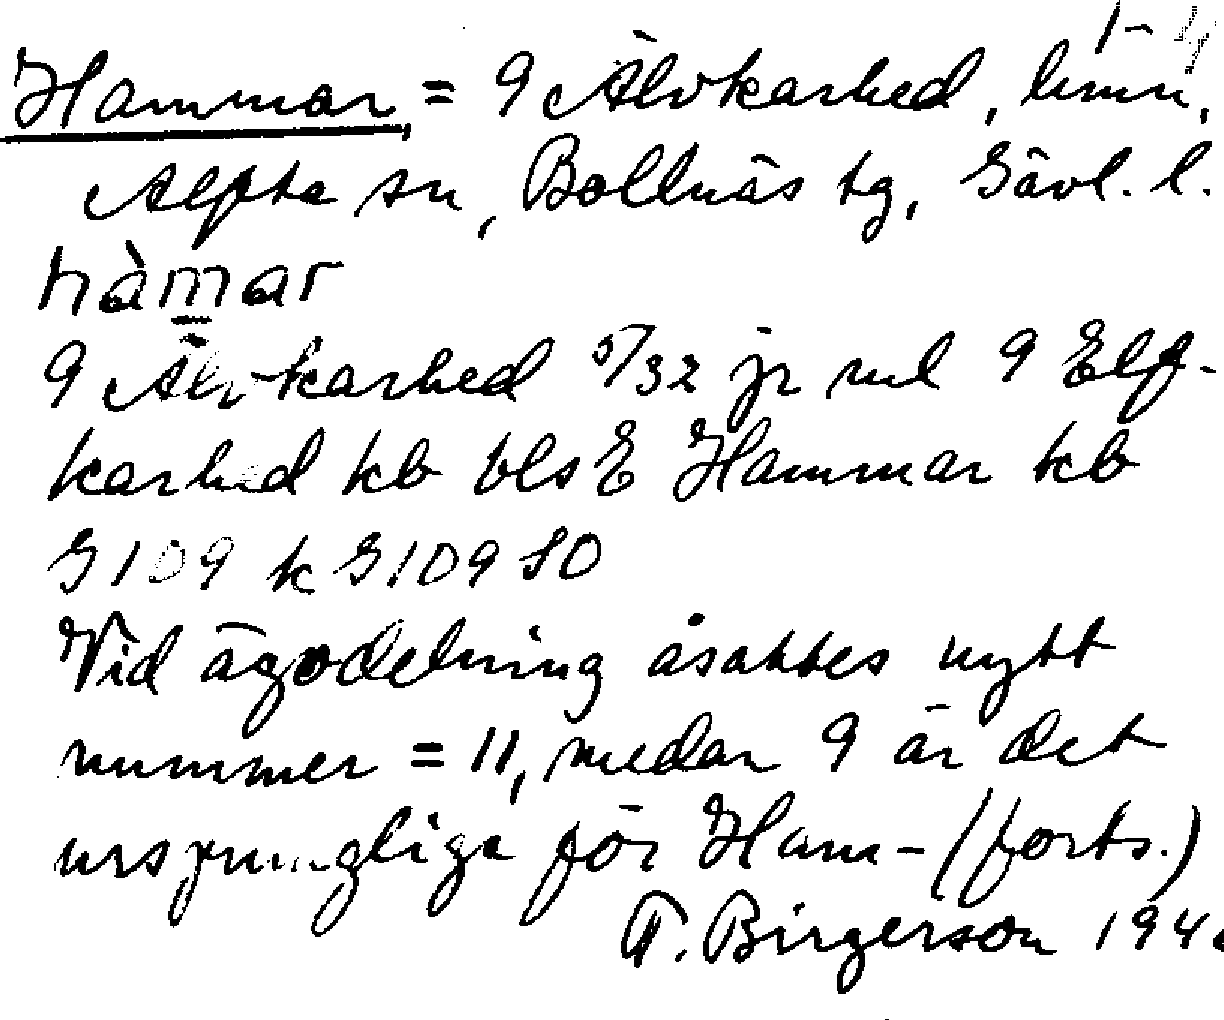 1-4
Hammar, = 9 Älvkarhed, hmn,
Alfta sn, Bollnäs tg, Gävl. l.
hàmar
9 Älvkarhed 5/32 jr ml 9 Elf-
karhed kb bls E Hammar kb
G109 k G109 SO
Vid ägodelning åsattes nytt
nummer = 11, medan 9 är det
ursprungliga för Ham- (forts.)
T. Birgerson 194